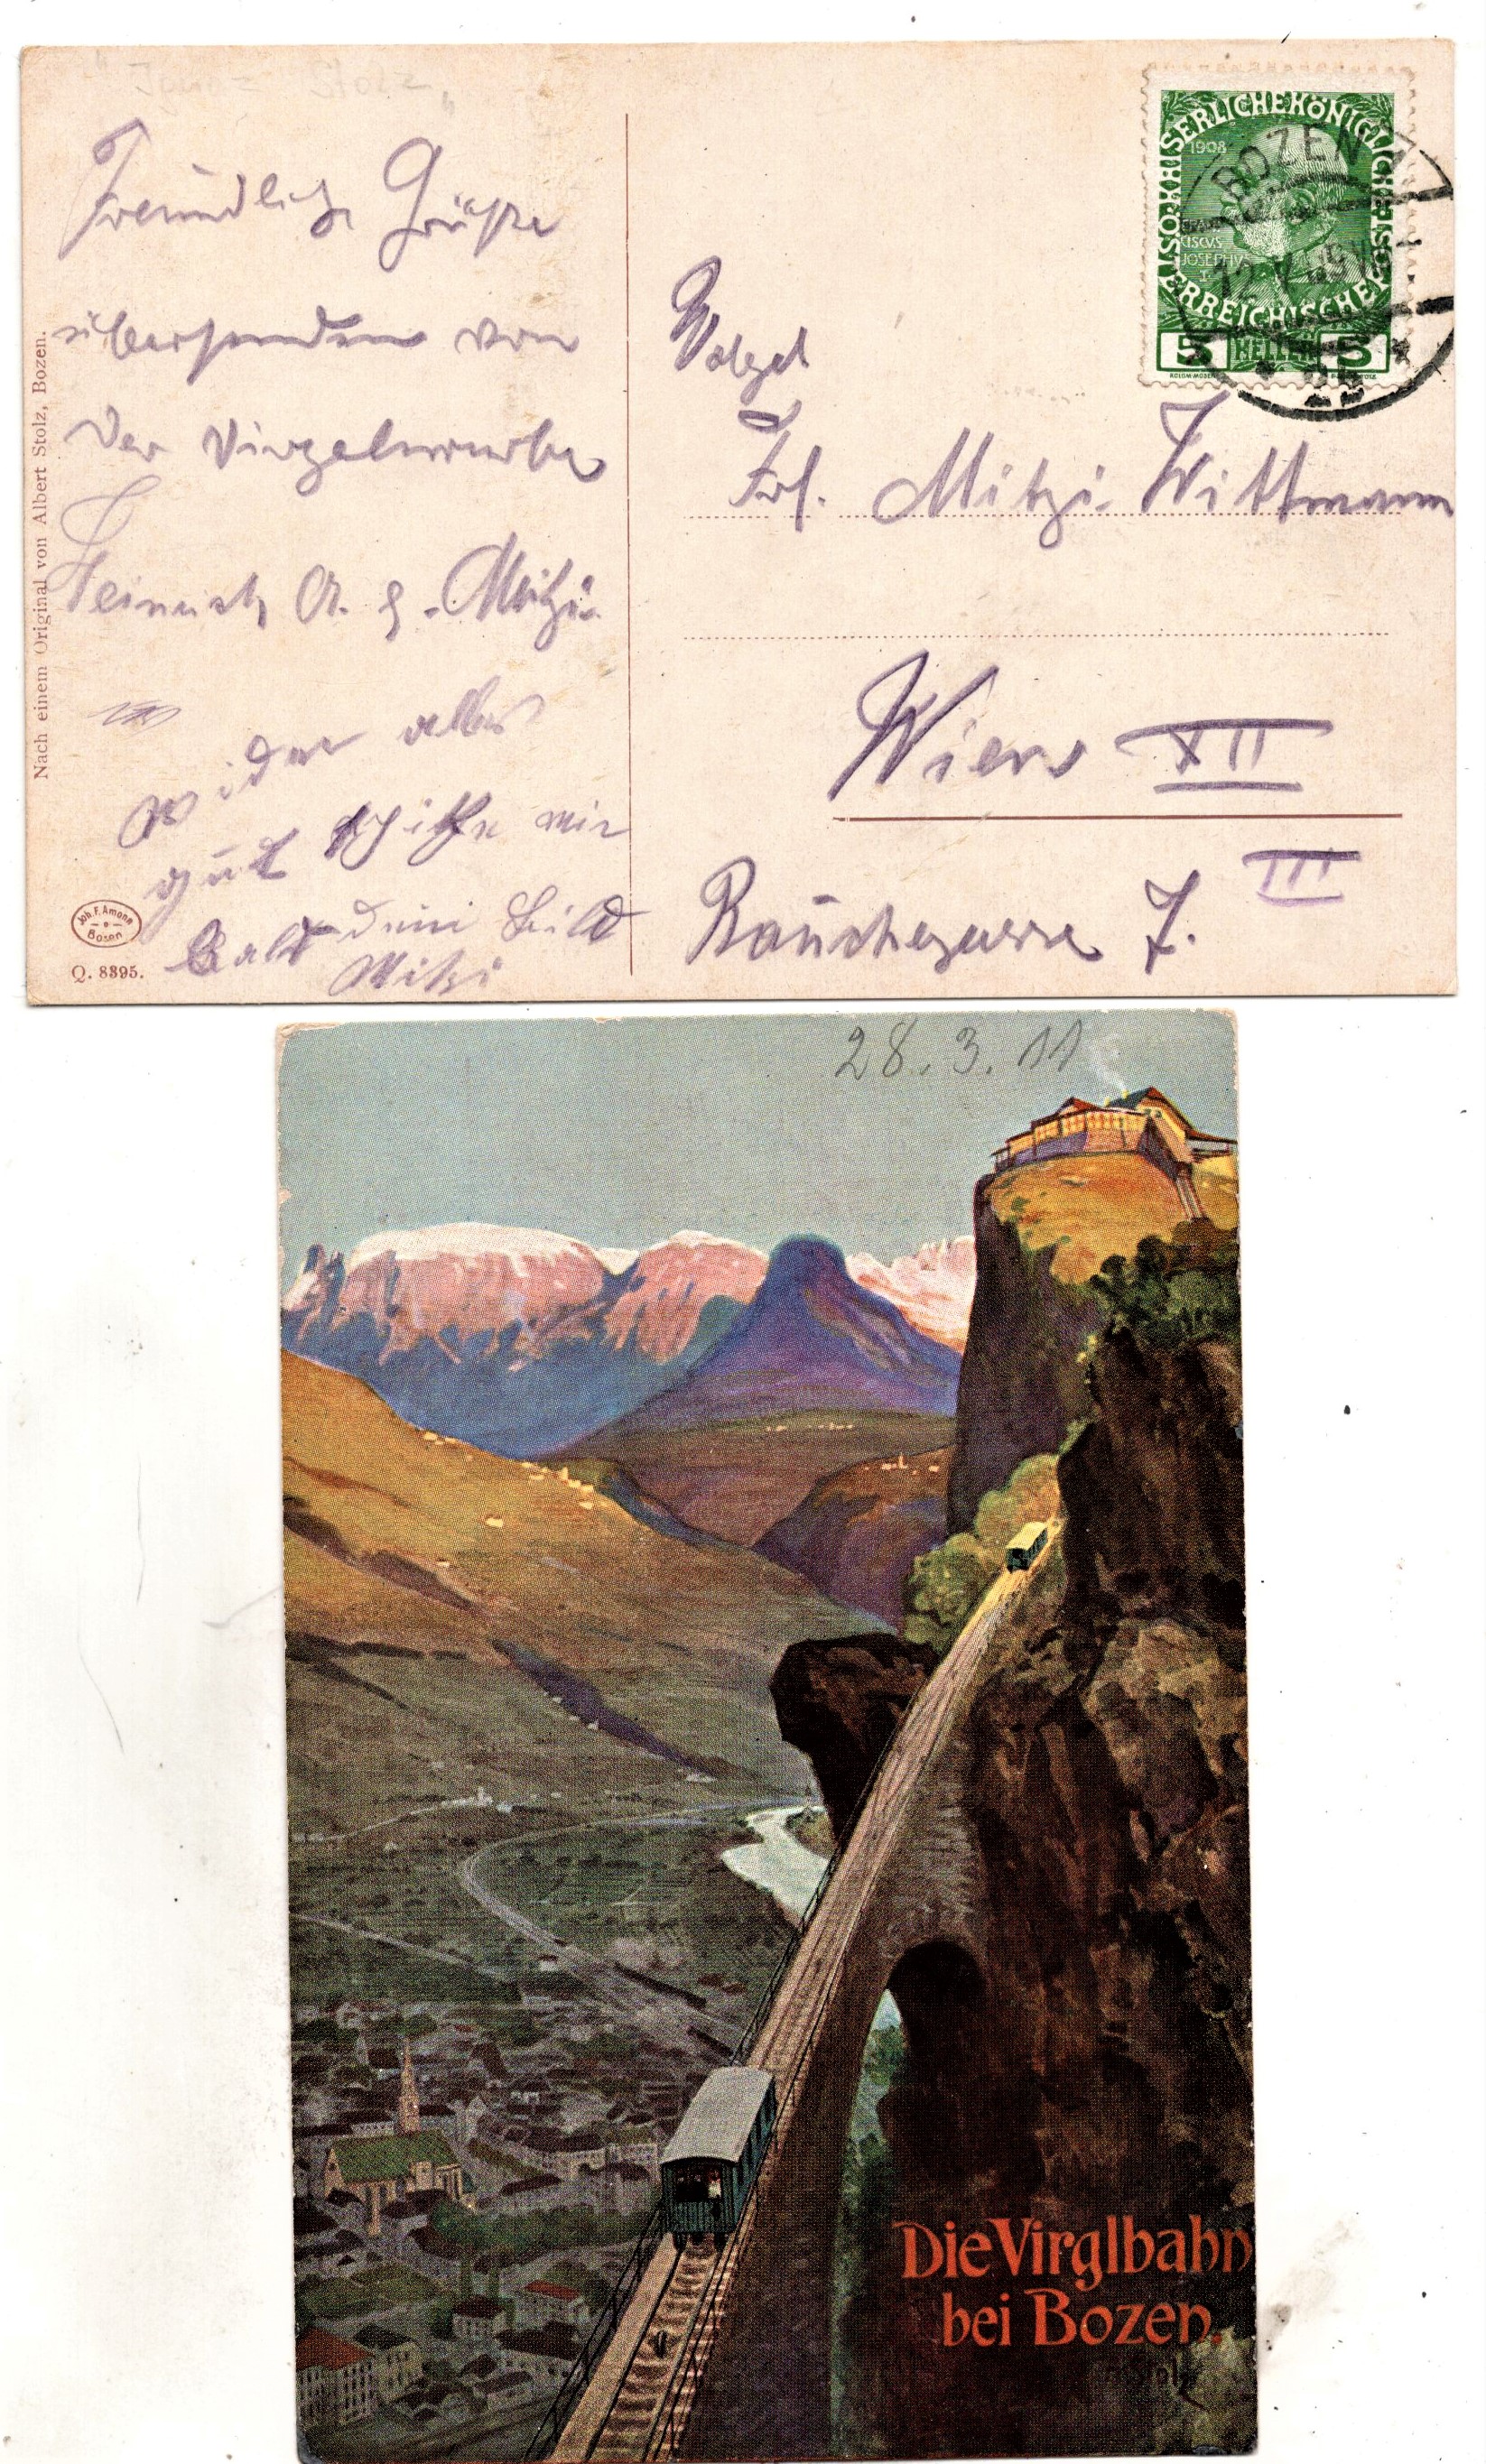 "Ignaz Stolz"
Freundliche Grüße
übersenden von
der Virgelwarte
Heinrich A. g. Mitzi
wider alles
gut schike mir
bald dein Bild
Mitzi
Nach einem Original von Albert Stolz, Bozen.
Joh. F. Amonn
Bozen
Q. 8395.
KAISERLICHEKÖNIGLICHE
ÖSTERREICHISCHE POST
1908
CISCVS
JOSEPHVS
I
5 HELLER 5
BOZEN
12
Frl. Mitzi Wittmann
Wien XII
III
Rauchgasse 7.
28.3.11
Die Virglbahn
bei Bozen.
Stolz